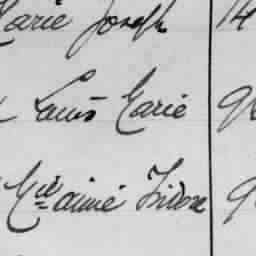 Marie Joseph 14
Louis Marie 9
Mie aimé Isidore 9